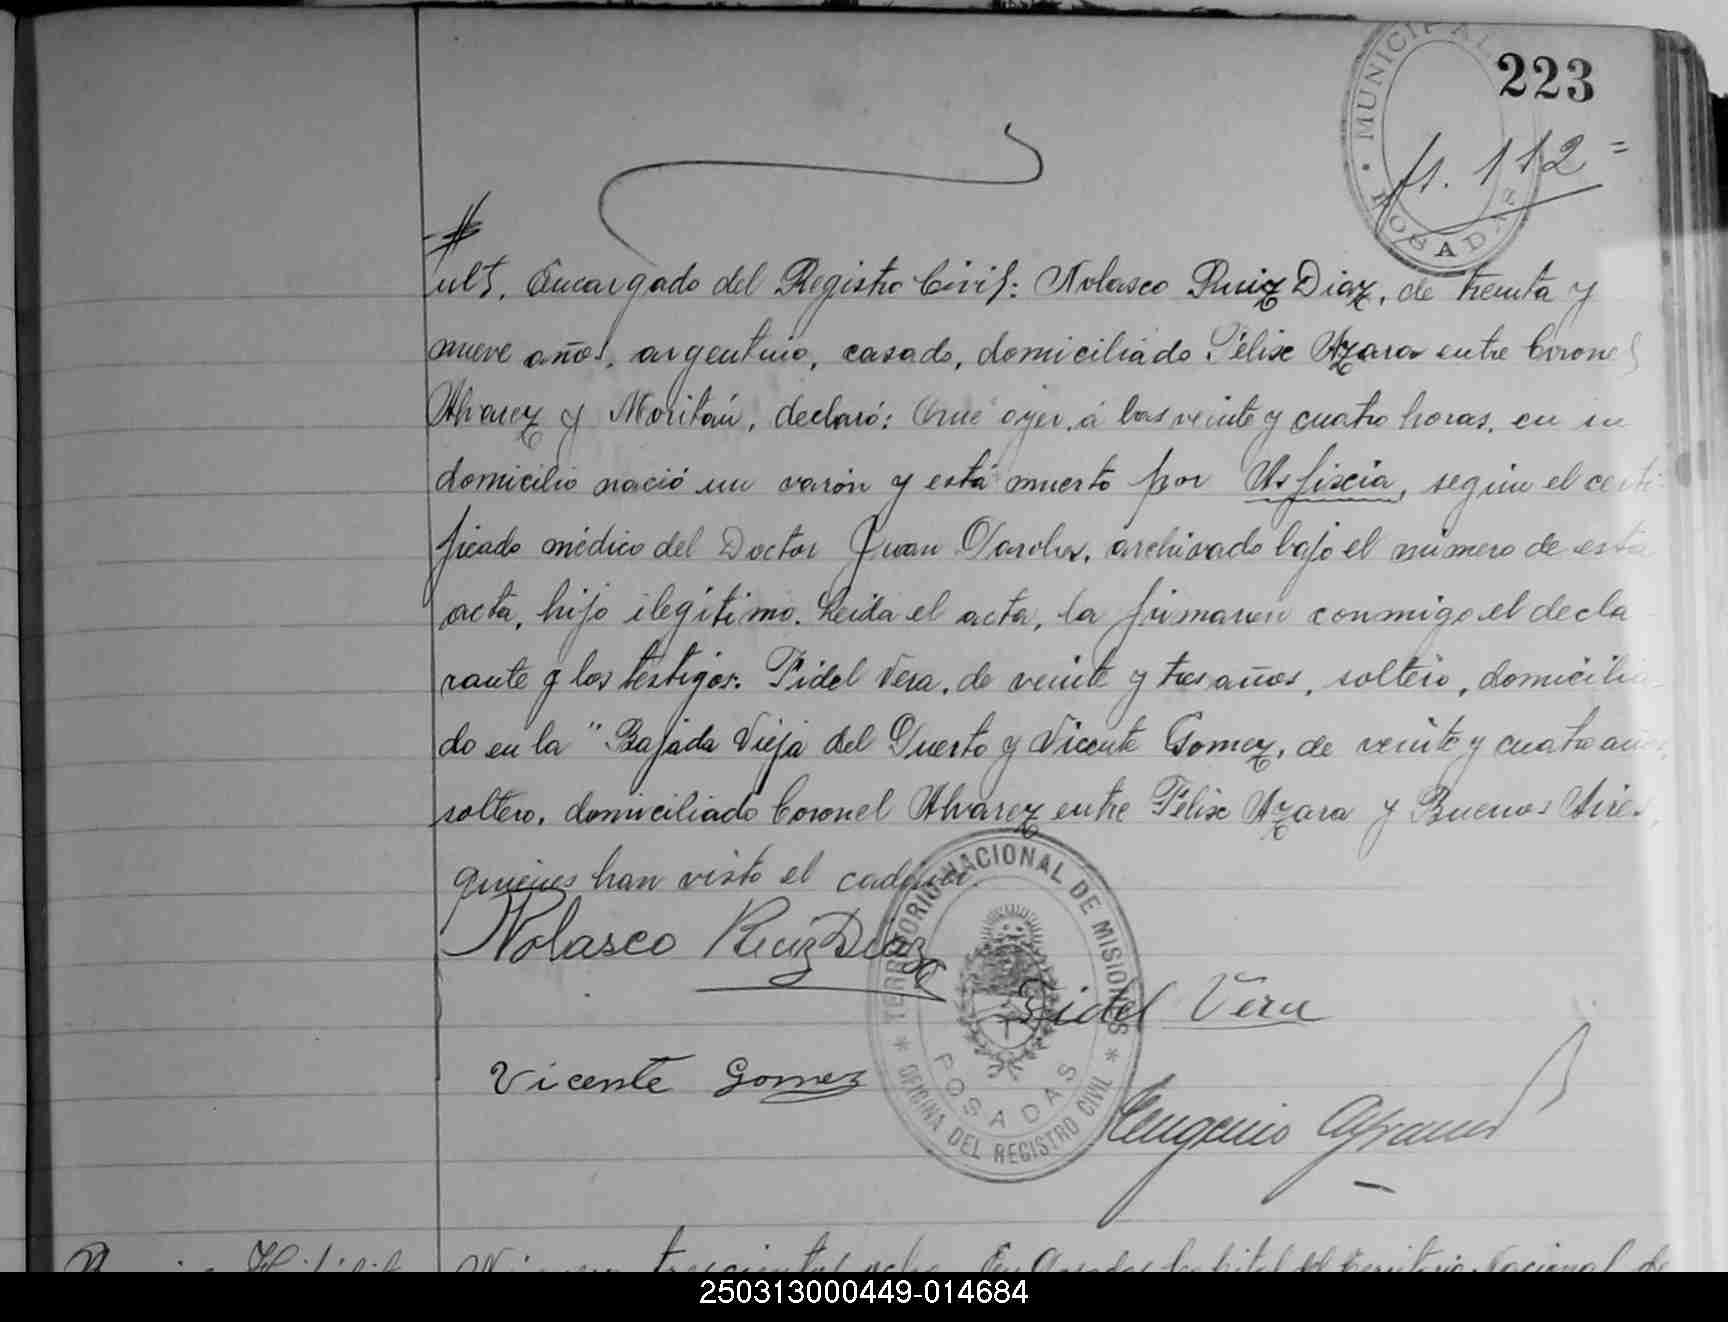 MUNICIPAL
POSADAS
223
fs. 112=
ult, Encargado del Registro Civil: Nolasco Ruiz Diaz, de treinta y
nueve años, argentino, casado, domiciliado Félix Azara entre Coronel
Alvarez y Moritán, declaró: Que ayer, á las veinte y cuatro horas, en su
domicilio nació un varón y está muerto por Asfixia, según el certi-
ficado médico del Doctor Juan, archivado bajo el número de esta
acta, hijo ilegítimo. Leida el acta, la firmaron conmigo el decla-
rante y los testigos: Fidel Vera, de veinte y tres años, soltero, domicilia-
do en la "Bajada Vieja del Puerto y Vicente Gomez, de veinte y cuatro años,
soltero, domiciliado Coronel Alvarez entre Félix Azara y Buenos Aires,
quienes han visto el cadáver.
Nolasco Ruiz Diaz
Fidel Vera
Vicente Gomez
Eugenio
TERRITORIO NACIONAL DE MISIONES
POSADAS
* OFICINA DEL REGISTRO CIVIL *
Número trescientos ocho. En Posadas Capital del Territorio Nacional de
250313000449-014684